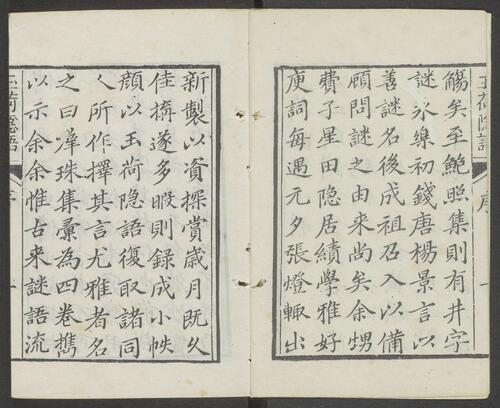 玉荷隐語
序
觴矣至鮑照集則有井字
謎永樂初錢唐楊景言以
善謎名後成祖召入以備
顧問謎之由來尚矣余甥
費子星田隐居績學雅好
庾詞每遇元夕張燈輙出
新製以資探賞歲月既久
佳搆遂多暇則錄成小帙
顔以玉荷隐語復取諸同
人所作擇其言尤雅者名
之曰羣珠集彙為四卷擕
以示余余惟古来謎語流
玉荷隐語
序